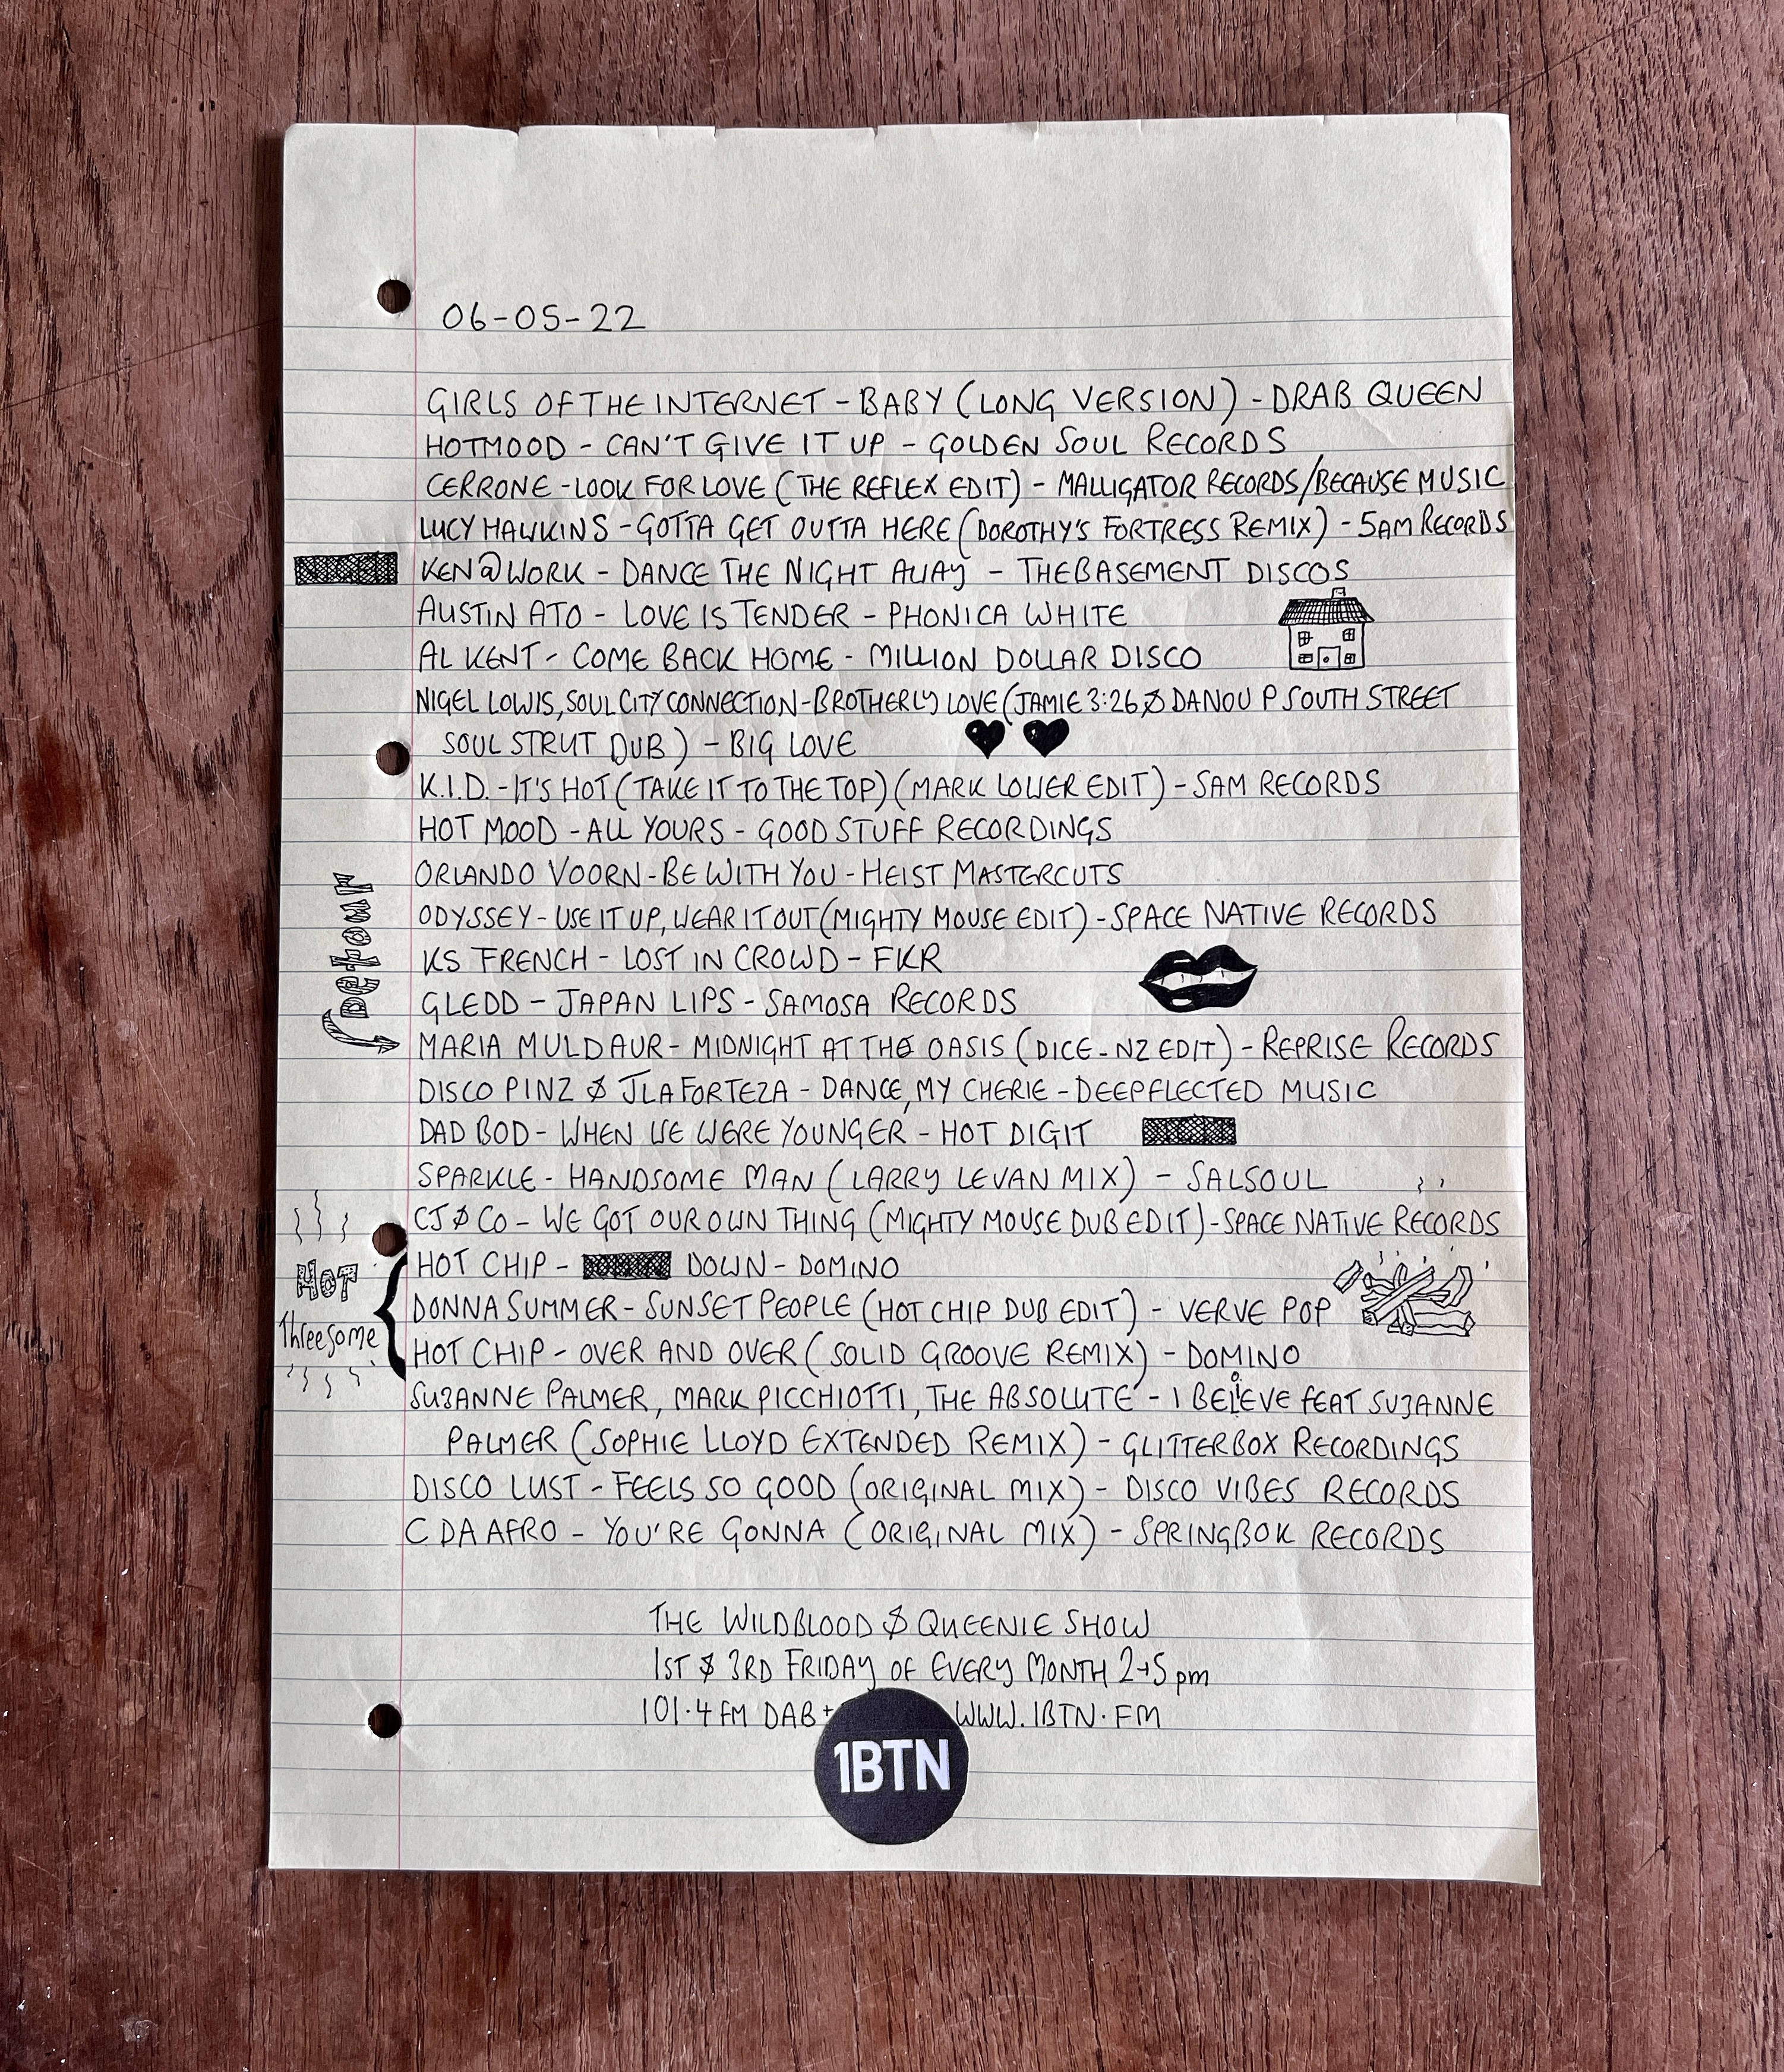 06-05-22
GIRLS OF THE INTERNET - BABY (LONG VERSION) - DRAB QUEEN
HOTMOOD - CAN'T GIVE IT UP - GOLDEN SOUL RECORDS
CERRONE - LOOK FOR LOVE (THE REFLEX EDIT) - MALLIGATOR RECORDS/BECAUSE MUSIC
LUCY HAWKINS - GOTTA GET OUTTA HERE (DOROTHY'S FORTRESS REMIX) - SAM RECORDS
KEN@WORK - DANCE THE NIGHT AWAY - THEBASEMENT DISCOS
AUSTIN ATO - LOVE IS TENDER - PHONICA WHITE
AL KENT - COME BACK HOME - MILLION DOLLAR DISCO
NIGEL LOWIS, SOUL CITY CONNECTION - BROTHERLY LOVE (JAMIE 3:26 & DANOU P SOUTH STREET
SOUL STRUT DUB) - BIG LOVE
K.I.D. - IT'S HOT (TAKE IT TO THE TOP) (MARK LOWER EDIT) - SAM RECORDS
HOT MOOD - ALL YOURS - GOOD STUFF RECORDINGS
ORLANDO VOORN - BE WITH YOU - HEIST MASTERCUTS
ODYSSEY - USE IT UP, WEAR IT OUT (MIGHTY MOUSE EDIT) - SPACE NATIVE RECORDS
KS FRENCH - LOST IN CROWD - FKR
GLEDD - JAPAN LIPS - SAMOSA RECORDS
Detour
MARIA MULDAUR - MIDNIGHT AT THE OASIS (DICE-NZ EDIT) - REPRISE RECORDS
DISCO PINZ & JLAFORTEZA - DANCE, MY CHERIE - DEEPFLECTED MUSIC
DAD BOD - WHEN WE WERE YOUNGER - HOT DIGIT
SPARKLE - HANDSOME MAN (LARRY LEVAN MIX) - SALSOUL
CJ & CO - WE GOT OUR OWN THING (MIGHTY MOUSE DUB EDIT) - SPACE NATIVE RECORDS
HOT threesome
HOT CHIP - DOWN - DOMINO
DONNA SUMMER - SUNSET PEOPLE (HOT CHIP DUB EDIT) - VERVE POP
HOT CHIP - OVER AND OVER (SOLID GROOVE REMIX) - DOMINO
SUZANNE PALMER, MARK PICCHIOTTI, THE ABSOLUTE - I BELIEVE FEAT SUZANNE
PALMER (SOPHIE LLOYD EXTENDED REMIX) - GLITTERBOX RECORDINGS
DISCO LUST - FEELS SO GOOD (ORIGINAL MIX) - DISCO VIBES RECORDS
C DA AFRO - YOU'RE GONNA (ORIGINAL MIX) - SPRINGBOK RECORDS
THE WILDBLOOD & QUEENIE SHOW
1ST & 3RD FRIDAY OF EVERY MONTH 2→5 pm
101.4 FM DAB+ WWW.1BTN.FM
1BTN